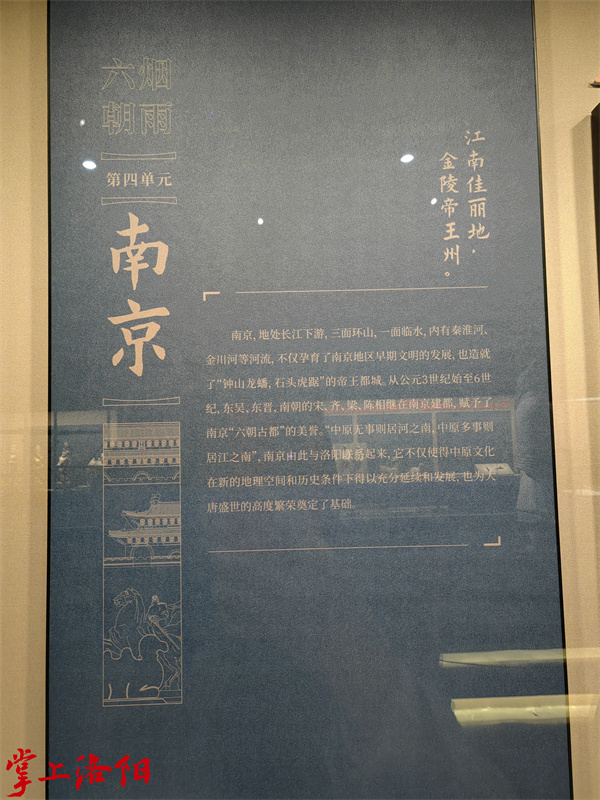 六烟
朝雨
第四单元
南京
江南佳丽地，
金陵帝王州。
南京，地处长江下游，三面环山，一面临水，内有秦淮河、
金川河等河流，不仅孕育了南京地区早期文明的发展，也造就
了“钟山龙蟠，石头虎踞”的帝王都城。从公元3世纪始至6世
纪，东吴、东晋，南朝的宋、齐、梁、陈相继在南京建都，赋予了
南京“六朝古都”的美誉。“中原无事则居河之南，中原多事则
居江之南”，南京由此与洛阳联系起来，它不仅使得中原文化
在新的地理空间和历史条件下得以充分延续和发展，也为大
唐盛世的高度繁荣奠定了基础。
掌上洛阳